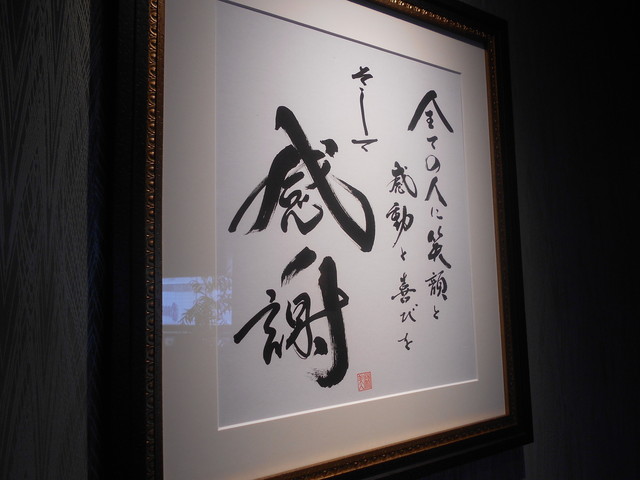 全ての人に笑顔と
感動と喜びを
そして
感謝